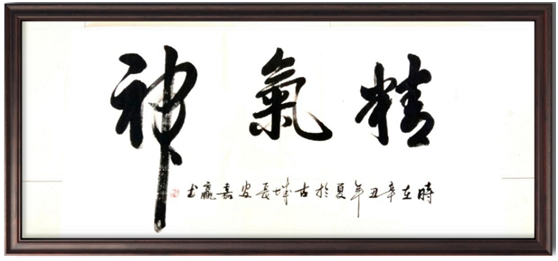 精氣神
時在辛丑年夏於古城長安嘉贏书